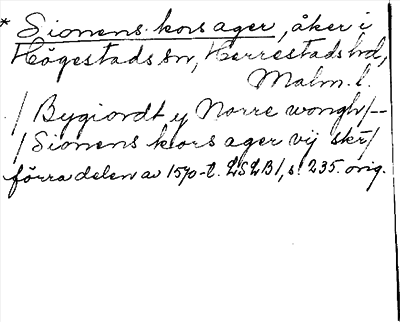 * Sionens kors ager, åker i
Högestads sn, Herrestads hd,
Malm. l.
/ Bygiordt y Norre wongh/--
/ Sionens kors ager vij skr/
förra delen av 1570-t. LSLB1, s. 235. orig.